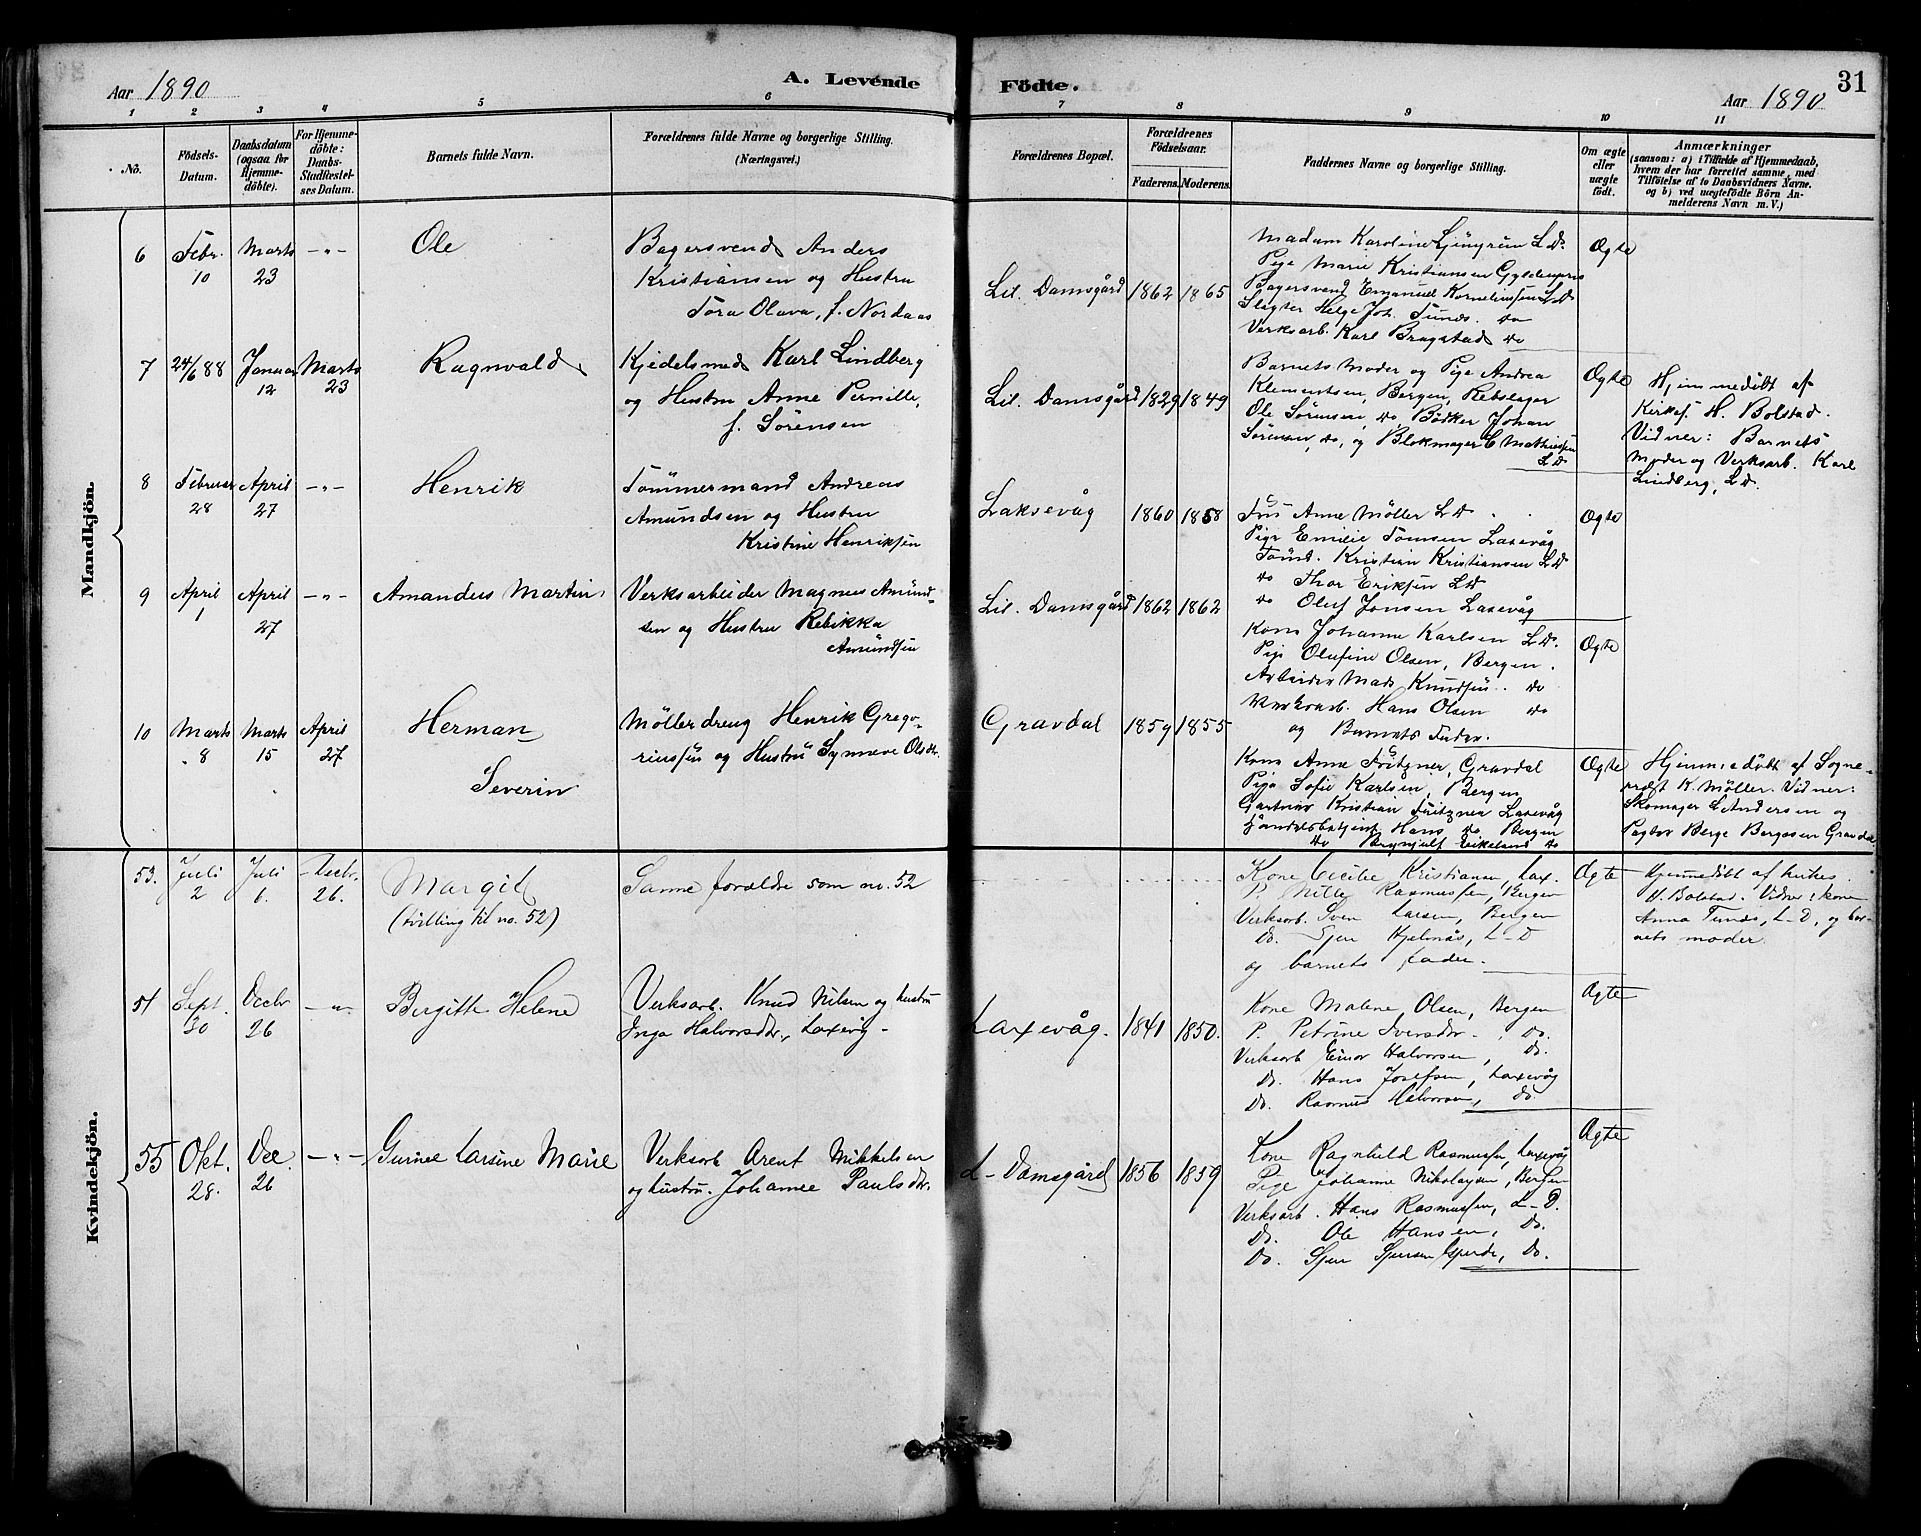 Aar 1890
A. Levende
Födte.
Aar 1890
31
1 2 3 4 5 6 7 8 9 10 11
No.
Födsels-
Datum.
Daabsdatum
(ogsaa for
Hjemme-
döbte).
For Hjemme-
döbte:
Daabs-
Stadfæstel-
ses Datum.
Barnets fulde Navn.
Forældrenes fulde Navne og borgerlige Stilling.
(Næringsvei.)
Forældrenes Bopæl.
Forældrenes
Födselsaar.
Faderens. Moderens.
Faddernes Navne og borgerlige Stilling.
Om ægte
eller
uægte
födt.
Anmærkninger
(saasom: a) i Tilfælde af Hjemmedaab,
hvem der har forrettet samme, med
Tilföielse af to Daabsvidners Navne.
og b) ved uægtefödte Börn An-
melderens Navn m. V.)
Mandkjön.
6
Febr.
10
Marts
23
-"-
Ole
Bagersvend Anders
Kristiansen og Hustru
Tora Olava, f. Nordaas
Lil. Damsgård
1862
1865
Madam Karoline L.D.
Pige Marie Kristiansen Gyldenpris
Bagersvend Emanuel Korneliussen L.D
Slagter Helge Joh. Tunds. do
Verksarb. Karl Bragstad do
Ægte
7
24/6 88
Januar
12
Marts
23
Ragnvald
Kjedelsmed Karl Lindberg
og Hustru Anne Pernille,
f. Sörensen
Lil. Damsgård
1829
1849
Barnets Moder og Pige Andrea
Klementsen, Bergen, Rebslager
Ole Sörensen, do, Bödker Johan
Sörensen, do, og Blokmager C Mathiesen
L.D
Ægte
Hjemmedöbt af
Kirkes. H. Bolstad.
Vidner: Barnets
Moder og Verksarb. Karl
Lindberg, L.D.
8
Februar
28
April
27
-"-
Henrik
Tömmermand Andreas
Amundsen og Hustru
Kristine Henriksen
Laksevåg
1860
1858
Frü Anne Möller L.D
Pige Emilie Tomsen Laxevåg
Tömd. Kristian Kristiansen L.D
do Thor Eriksen L.D
do Oluf Jonsen Laxevåg
Ægte
9
April
1
April
27
-"-
Amandus Martin
Verksarbeider Magnus Amünd-
sen og Hustru Rebikka
Amündsen
Lil. Damsgård
1862
1862
Kone Johanne Karlsen L.D.
Pige Olufine Olsen, Bergen.
Arbeider Mads Knudsen do
Verksarb. Hans Olsen do
og Barnets Fader.
Ægte
10
Marts
8
Marts
15
April
27
Herman
Severin
Möllerdreng Henrik Grego-
riussen og Hustru Synneve Olsdtr.
Gravdal
1859
1855
Kone Anne Fritzner, Gravdal
Pige Sofie Karlsen, Bergen
Gartner Kristian Fritzner Laxevåg
Handelsbetjent Hans do Bergen
do Brynjulf Eikeland do
Ægte
Hjemmedöbt af Sogne-
præst K. Möller. Vidner:
Skomager L Andersen og
Berge Bergesen Gravdal
Kvindekjön.
53.
Juli
2
Juli
6.
Decbr.
26.
Margit
(tvilling til no. 52)
Samme forældre som no. 52
Kone Cecilie Kristiansen, Lax.
P. Nille Rasmussen, Bergen
Verksarb. Sven Larsen, Bergen
Do. Sjur Hjelmås, L-D
og barnets fader.
Ægte
Hjemmedöbt af kirkes.
H. Bolstad. Vidner: kone
Anna Tunds, L-D, og bar-
nets moder.
54
Sept.
30
Decbr
26
-"-
Bergitte Helene
Verksarb. Knud Nilsen og hustru
Inga Halvorsdtr., Laxevåg-
Laxevåg.
1841
1850.
Kone Malene Olsen, Bergen
P. Petrine Iversdtr. Do.
Verksarb Einar Halvorsen, Do.
Do. Hans Josefsen, Laxevåg
Do. Rasmus Halvorsen, do
Ægte
55
Okt.
28.
Dec.
26
-"-
Gurine Larine Marie
Verksarb Arent Mikkelsen
og hustru. Johanne Paulsdtr.
L-Damsgård
1856
1859
Kone Ragnhild Rasmussen, Laxevåg
Pige Johanne Nikolaysen, Bergen
Verksarb. Hans Rasmussen, L-D.
Do. Ole Hansen, Do.
Do. Sjur Sjursen Do.
Ægte